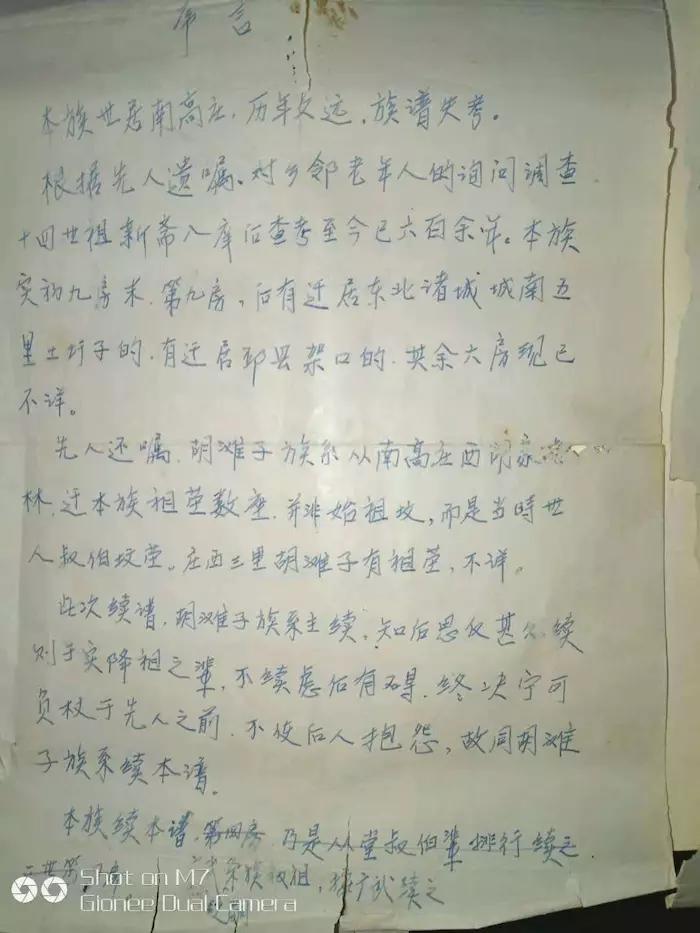 序言
本族世居南高庄，历年久远，族谱失考。
根据先人遗嘱。对乡邻老年人的询问调查
十四世祖新斋入庠后查考至今已六百余年。本族
实初九房末．第九房，后有迁居东北诸城城南五
里土圩子的．有迁居邳县架口的．其余六房现已
不详。
先人还嘱．胡滩子族系从南高庄西
林．迁本族祖茔数座．并非始祖坟，而是当时世
人叔伯坟茔。庄西三里胡滩子有祖茔，不详。
此次续谱．胡滩子族系主续。知后思仪甚 续
则于实降祖之辈．不续虑后有碍．终决宁可
负杖于先人之前．不使后人抱怨，故同胡滩
子族系续本谱．
本族续本谱．第四房．乃是从堂叔伯辈排行续之
族叔祖，续之
Shot on M7
Gionee Dual Camera